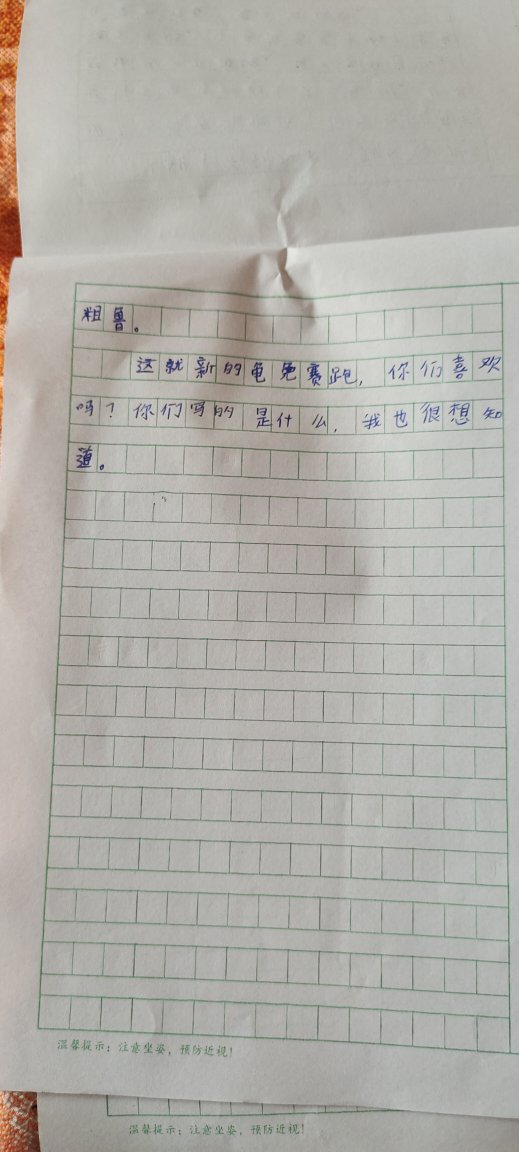 粗鲁。
这就新的龟兔赛跑，你们喜欢
吗？你们写的是什么，我也很想知
道。
温馨提示：注意坐姿，预防近视！
温馨提示：注意坐姿，预防近视！